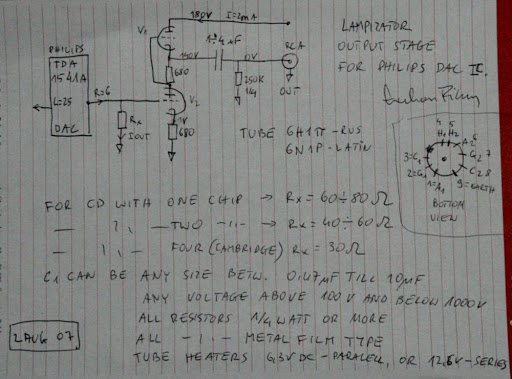 180V I=2mA
V1
1÷4µF
140V
0V
RCA
680
250K
1/4
OUT
PHILIPS
TDA
1541A
L=25
R=6
DAC
Rx
IOUT
V2
1V
680
LAMPIZATOR
OUTPUT STAGE
FOR PHILIPS DAC IC.
TUBE 6H1П - RUS
6N1P - LATIN
4 5
H1 H2
A2 6
G2 7
C2 8
3=C1
2=G1
1=A1
9=EARTH
BOTTOM
VIEW
FOR CD WITH ONE CHIP → Rx = 60÷80 Ω
— " — TWO -"- → Rx = 40÷60 Ω
— " — FOUR (CAMBRIDGE) Rx = 30Ω
C1 CAN BE ANY SIZE BETW. 0,47µF TILL 10µF
ANY VOLTAGE ABOVE 100V AND BELOW 1000V
ALL RESISTORS 1/4 WATT OR MORE
ALL -"- METAL FILM TYPE
TUBE HEATERS 6,3V DC - PARALELL, OR 12,6V - SERIES
2 AUG 07